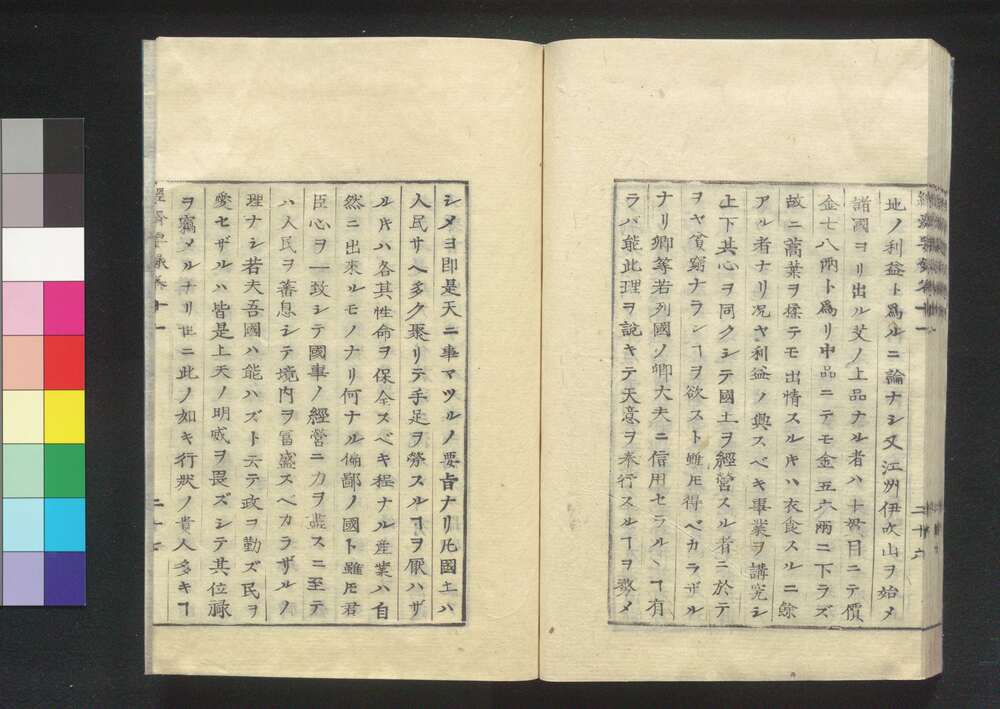 地ノ利益ト爲ルニ論ナシ又江州伊吹山ヲ始メ
諸國ヨリ出ル艾ノ上品ナル者ハ十貫目ニテ價
金七八兩ト爲リ中品ニテモ金五六兩ニ下ラズ
故ニ蒿葉ヲ揉テモ出情スル片ハ衣食スルニ餘
アル者ナリ况ヤ利益ノ興スベキ事業ヲ講究シ
上下其心ヲ同クシテ國土ヲ經營スル者ニ於テ
ヲヤ貧窮ナランヿヲ欲スト雖𪜈得ベカラザル
ナリ卿等若列國ノ卿大夫ニ信用セラルヽヿ有
ラバ能此理ヲ說キテ天意ヲ奉行スルヿヲ勤メ
二十六
シメヨ即是天ニ事マツルノ要旨ナリ凡國土ハ
人民サヘ多ク聚リテ手足ヲ勞スルヿヲ厭ハザ
ル片ハ各其性命ヲ保全スベキ程ナル産業ハ自
然ニ出來ルモノナリ何ナル偏鄙ノ國ト雖𪜈君
臣心ヲ一致シテ國事ノ經營ニ力ヲ盡スニ至テ
ハ人民ヲ蕃息シテ境内ヲ冨盛スベカラザルノ
理ナシ若夫吾國ハ能ハズト云テ政ヲ勤ズ民ヲ
愛セザルハ皆是上天ノ明威ヲ畏ズシテ其位祿
ヲ竊メルナリ世ニ此ノ如キ行狀ノ貴人多キヿ
二十七